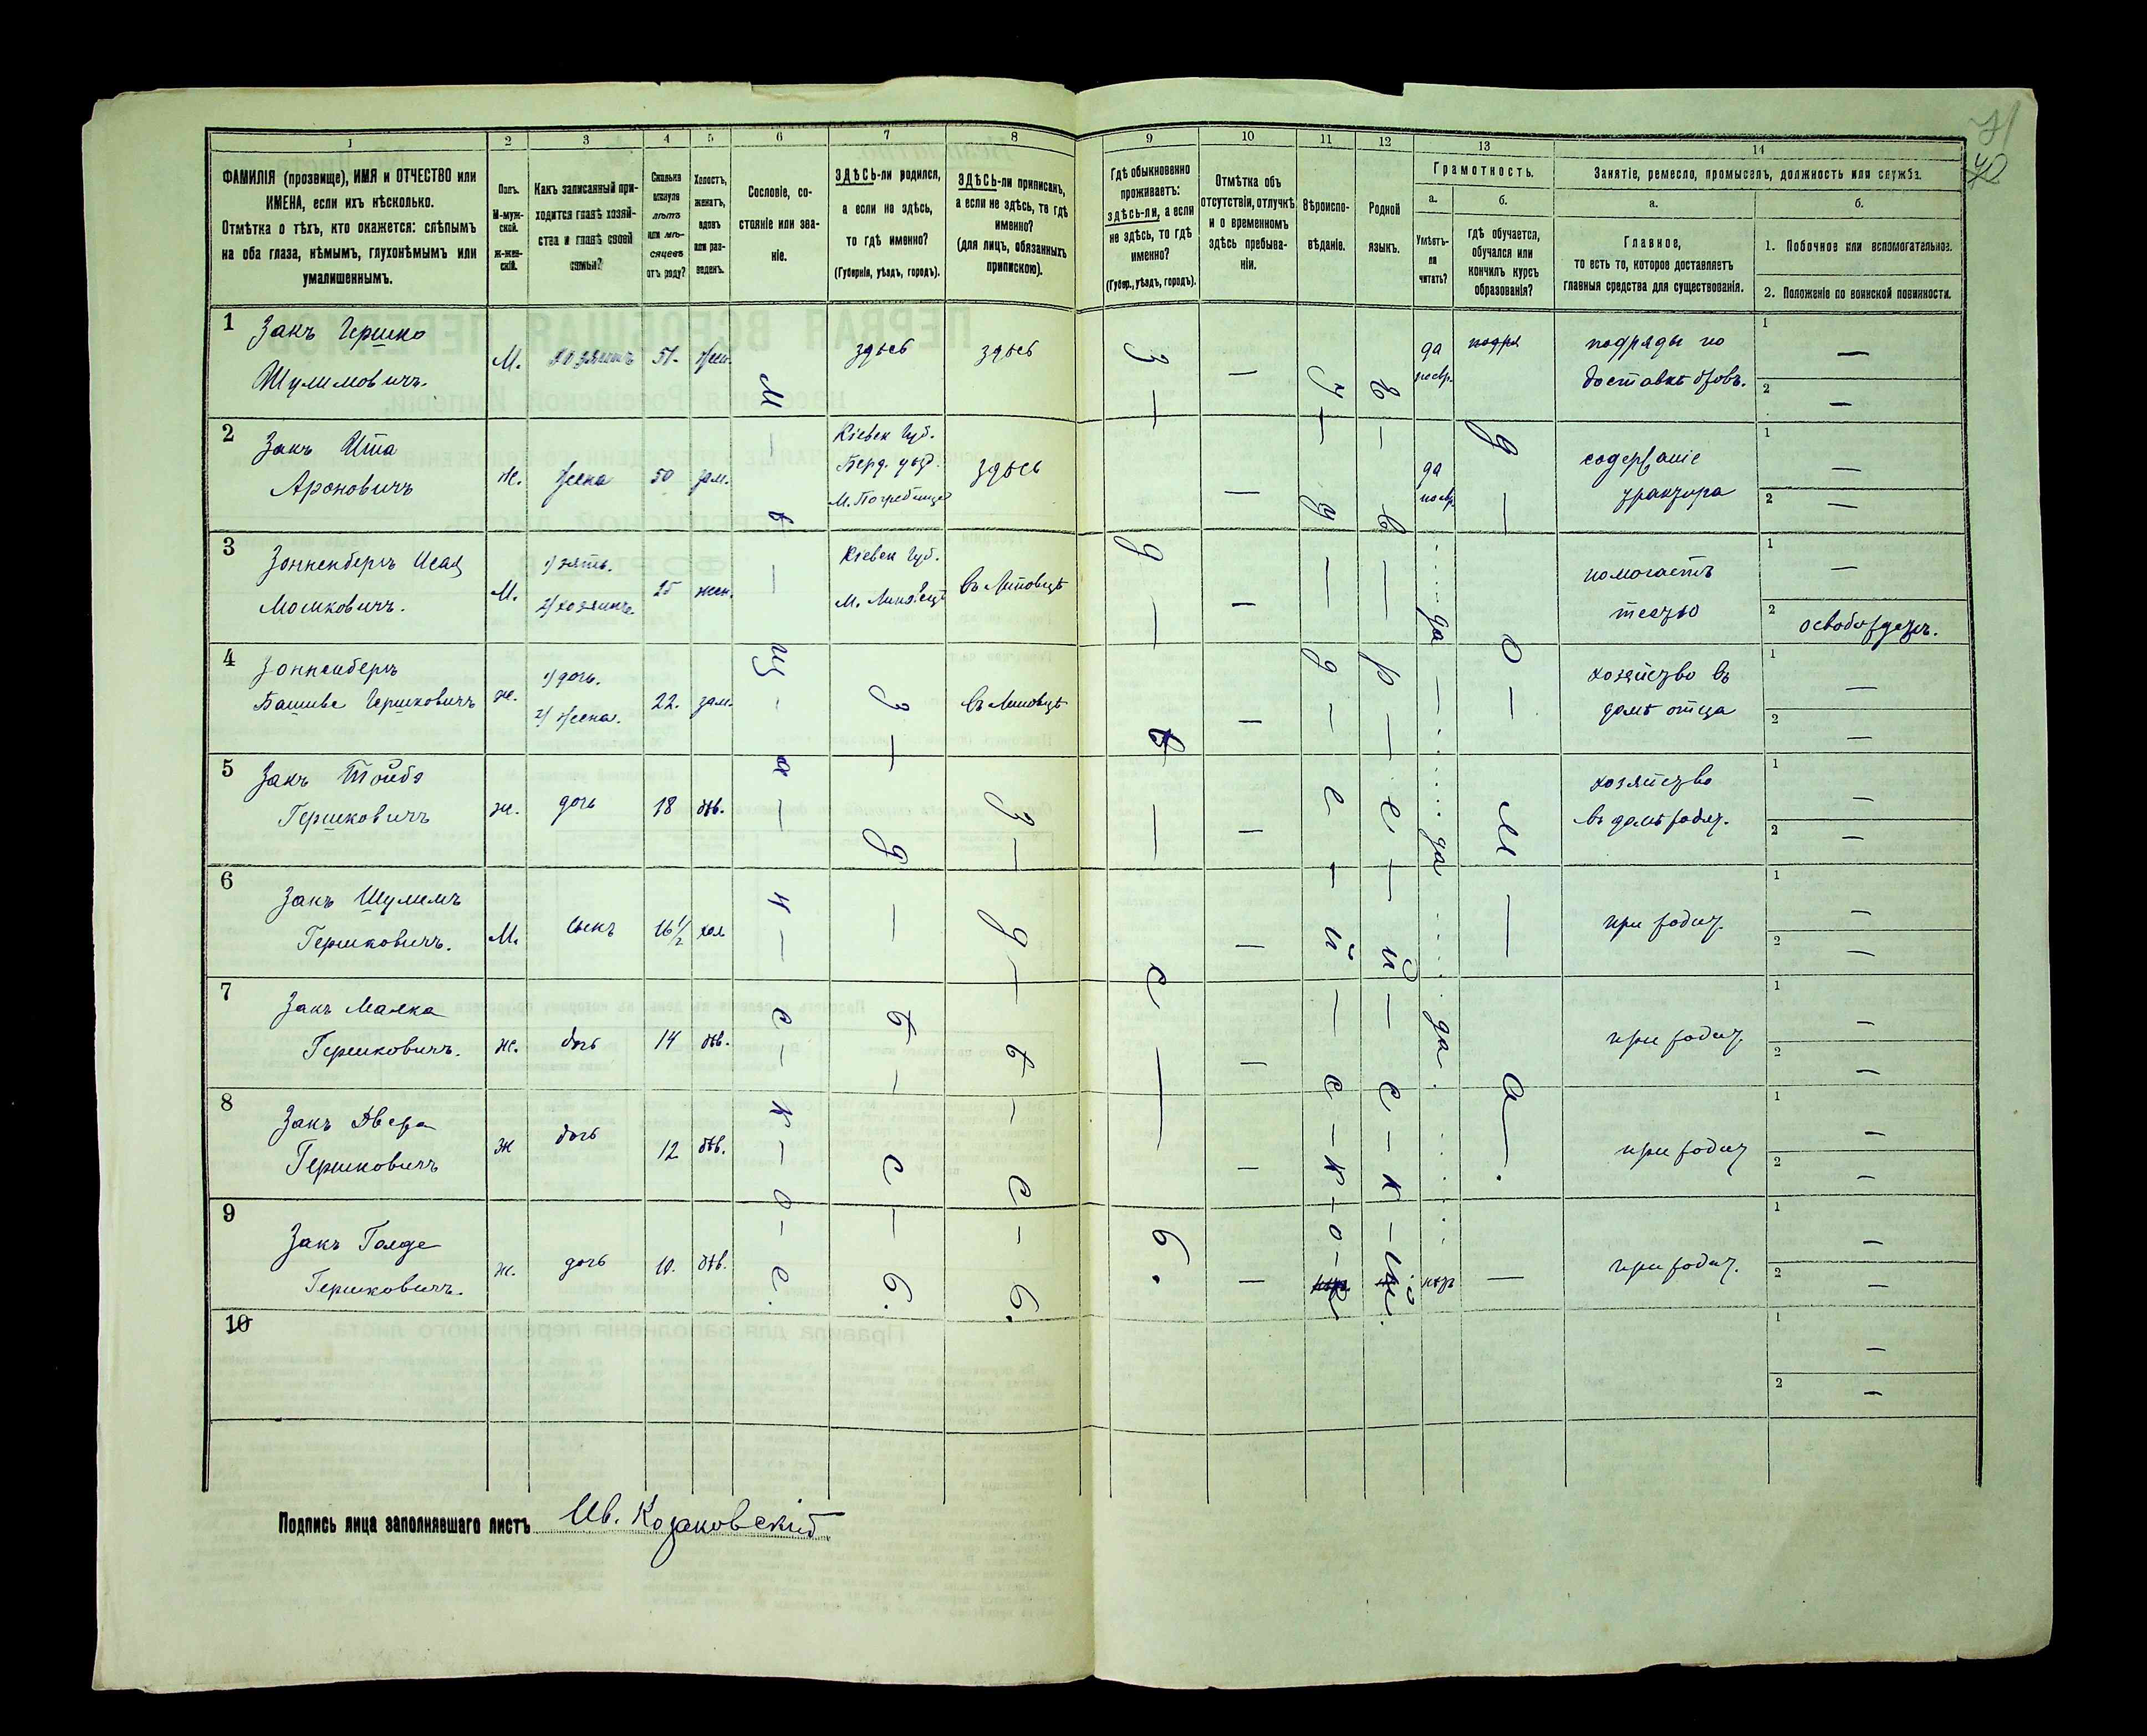 71
72
1 2 3 4 5 6 7 8 9 10 11 12 13 14
ФАМИЛІЯ (прозвище), ИМЯ и ОТЧЕСТВО или
ИМЕНА, если ихъ нѣсколько.
Отмѣтка о тѣхъ, кто окажется: слѣпымъ
на оба глаза, нѣмымъ, глухонѣмымъ или
умалишеннымъ.
Полъ.
М-муж-
ской.
ж-жен-
скій.
Какъ записанный при-
ходится главѣ хозяй-
ства и главѣ своей
семьи?
Сколько
минуло
лѣтъ
или мѣ-
сяцевъ
отъ роду?
Холостъ,
женатъ,
вдовъ
или раз-
веденъ.
Сословіе, со-
стояніе или зва-
ніе.
ЗДѢСЬ-ли родился,
а если не здѣсь,
то гдѣ именно?
(Губернія, уѣздъ, городъ).
ЗДѢСЬ-ли приписанъ,
а если не здѣсь, то гдѣ
именно?
(для лицъ, обязанныхъ
припискою).
Гдѣ обыкновенно
проживаетъ:
здѣсь-ли, а если
не здѣсь, то гдѣ
именно?
(Губер., уѣздъ, городъ).
Отмѣтка объ
отсутствіи, отлучкѣ
и о временномъ
здѣсь пребыва-
ніи.
Вѣроиспо-
вѣданіе.
Родной
языкъ.
Грамотность.
а.
Умѣетъ-
ли
читать?
б.
гдѣ обучается,
обучался или
кончилъ курсъ
образованія?
Занятіе, ремесло, промыселъ, должность или служба.
а.
Главное,
то есть то, которое доставляетъ
главныя средства для существованія.
б.
1. Побочное или вспомогательное.
2. Положеніе по воинской повинности.
1
Закъ Гершко
Шулимовичъ.
М.
хозяинъ
51.
жен.
здѣсь
здѣсь
да
подряды по
доставкѣ дровъ.
1 —
2 —
2
Закъ Ита
Ароновичъ
ж.
жена
50
зам.
Кіевск Губ.
Берд. уѣзд.
М. Погребище
здѣсь
да
содержаніе
трактира
1 —
2 —
3
Зонненбергъ Исай
Мошковичъ.
М.
1) зять.
2) хозяинъ.
25
жен.
Кіевск Губ.
въ Липовцѣ
да
помогаетъ
тестю
1 —
2 освобожденъ.
4
Зонненбергъ
Башива Гершковичъ
ж.
1) дочь.
2) жена.
22.
зам.
въ Липовцѣ
хозяйство въ
домѣ отца
1 —
2 —
5
Закъ Тойба
Гершковичъ
ж.
дочь
18
дѣв.
да
хозяйство
въ домѣ родит.
1 —
2 —
6
Закъ Шулимъ
Гершковичъ.
М.
сынъ
16 1/2
хол
при родит.
1 —
2 —
7
Закъ Малка
Гершковичъ.
ж.
дочь
14
дѣв.
да.
при родит.
1 —
2 —
8
Закъ Двера
Гершковичъ
ж
дочь
12
дѣв.
при родит
1 —
2 —
9
Закъ Голде
Гершковичъ.
ж.
дочь
10.
дѣв.
нѣтъ
—
при родит.
1 —
2 —
10
1 —
2 —
М — ѣ — щ — а — н — с — к — о — е.
З — д — ѣ — с — ь.
З — д — ѣ — с — ь.
З — д — ѣ — с — ь.
І — у — д — е — й — с — к — о — е
Е — в — р — е — й — с — к — ій.
д — о — м — а.
Подпись лица заполнявшаго листъ Ив. Козаковскій